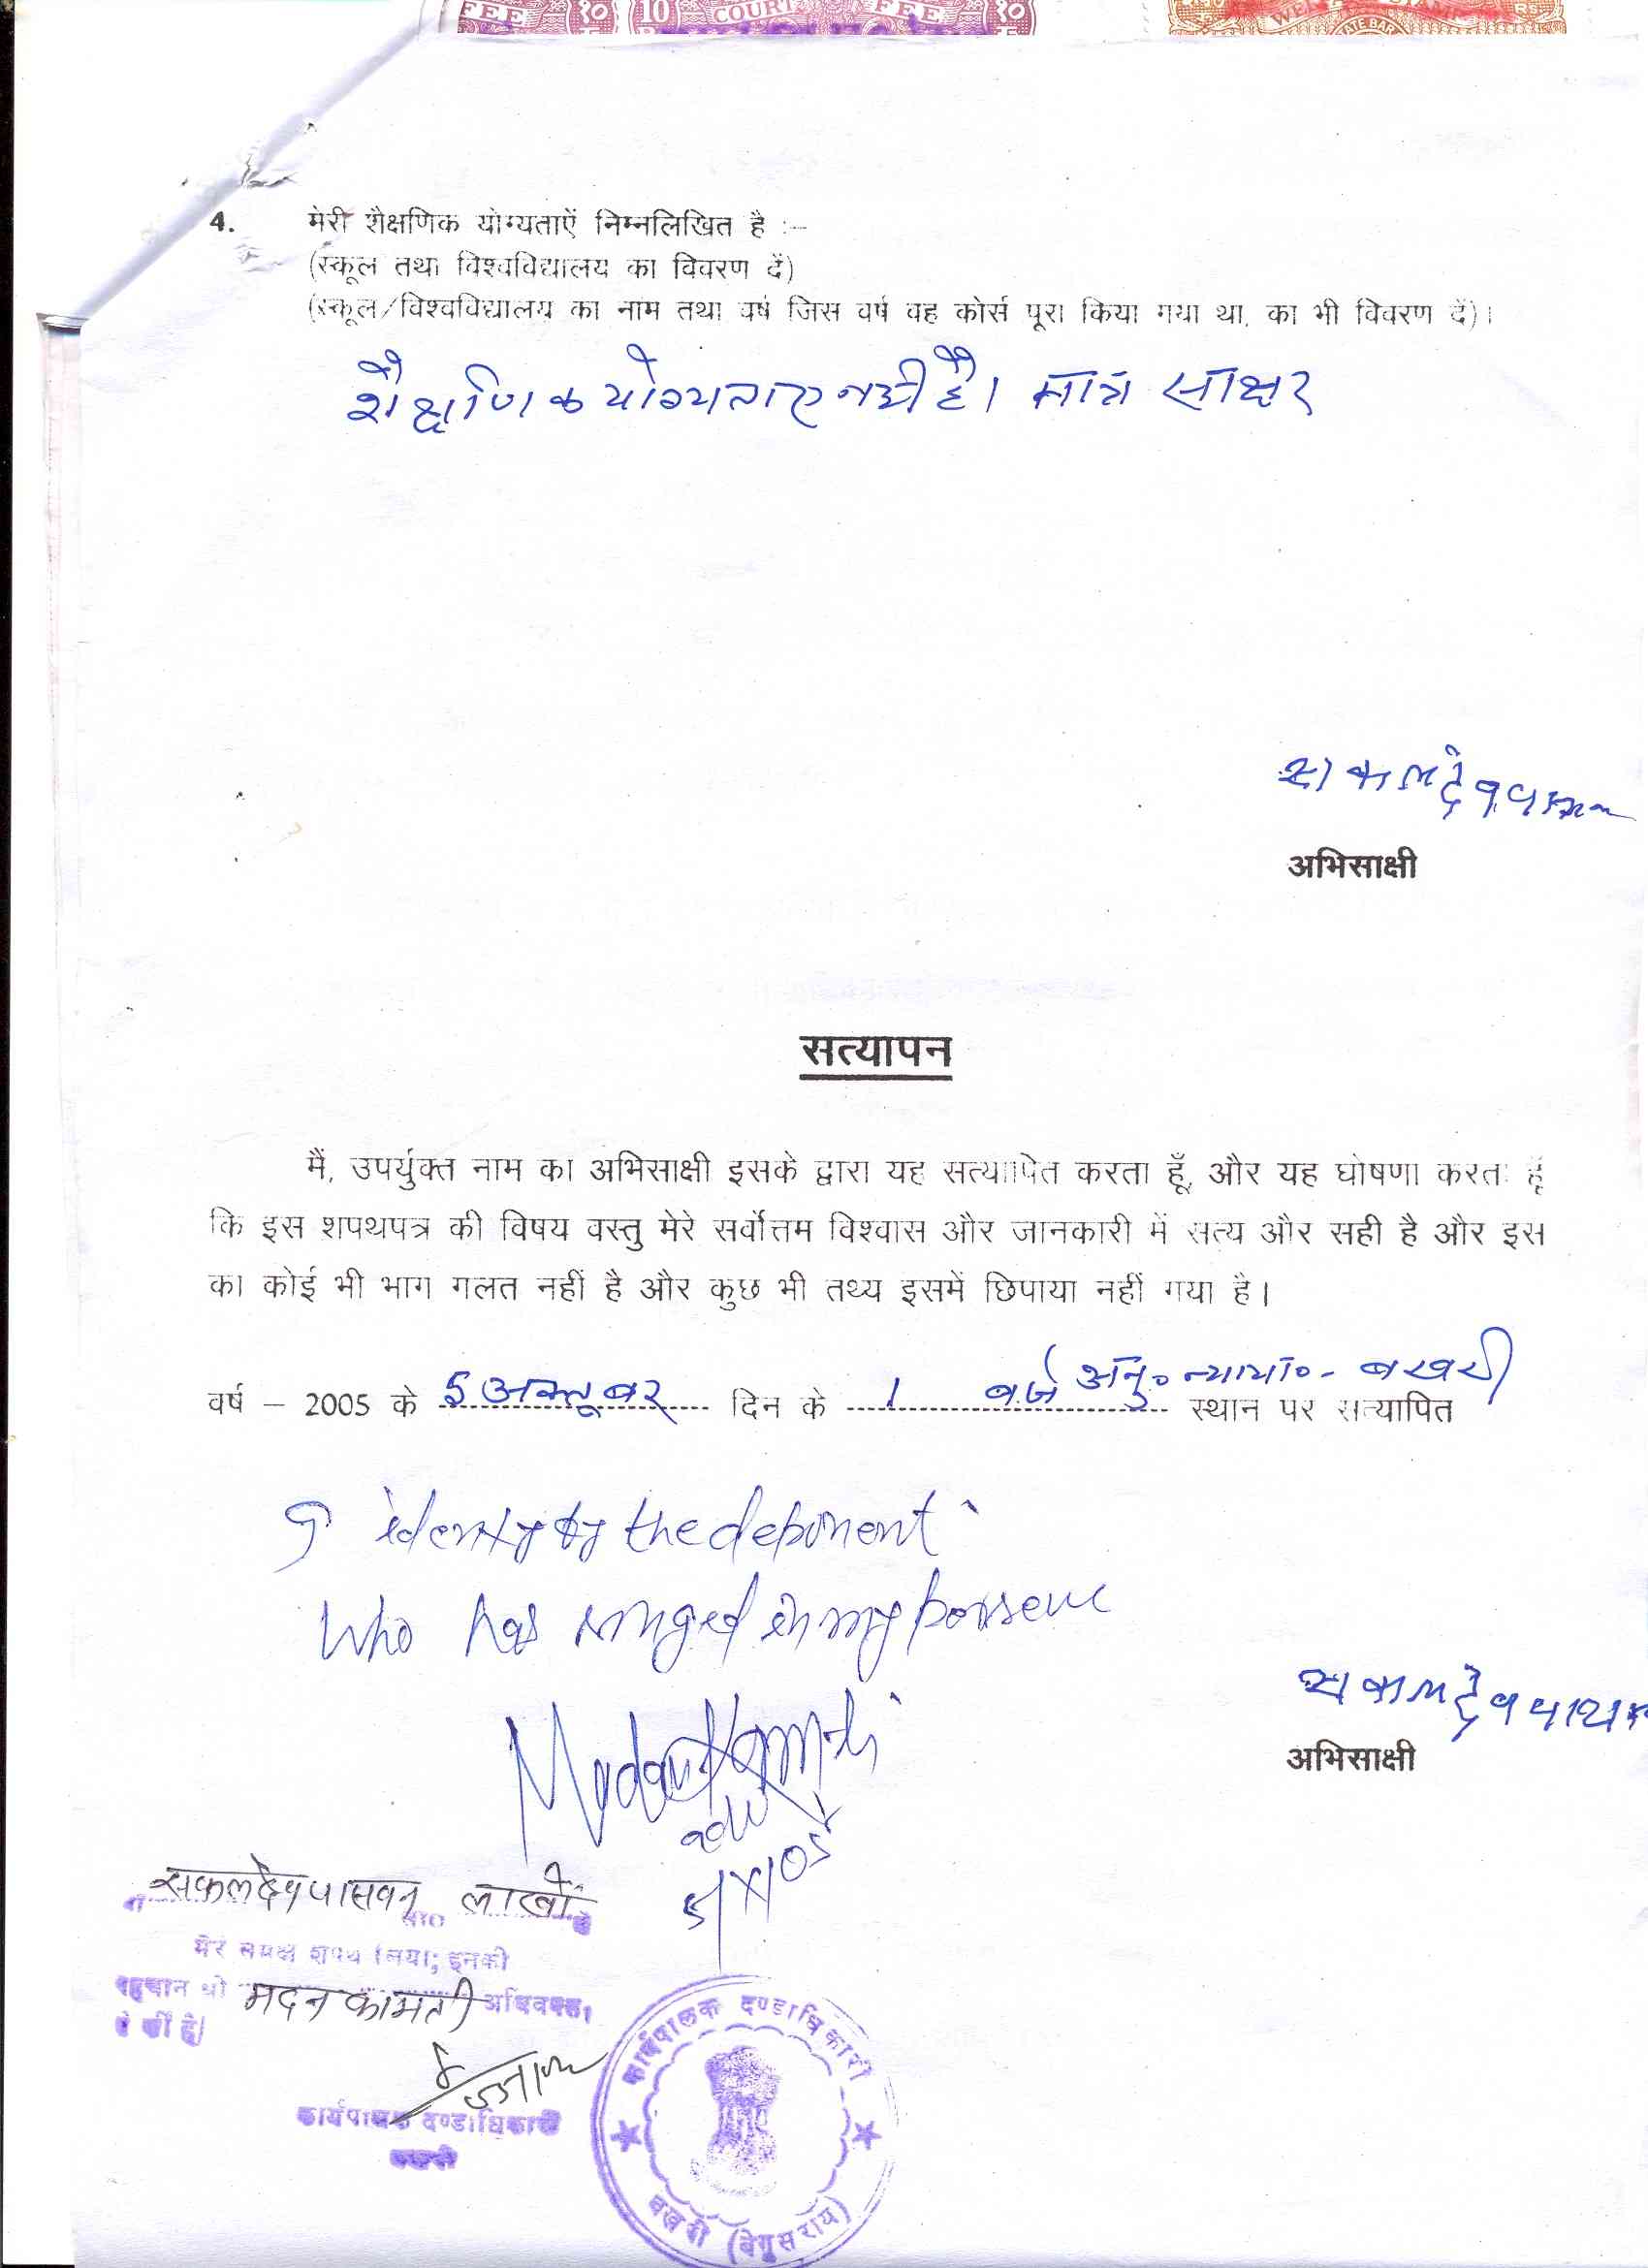 FEE १० 10 COURT FEE १०
4. मेरी शैक्षणिक योग्यताऐं निम्नलिखित है :–
(स्कूल तथा विश्वविद्यालय का विवरण दें)
(स्कूल/विश्वविद्यालय का नाम तथा वर्ष जिस वर्ष वह कोर्स पूरा किया गया था, का भी विवरण दें)।
शैक्षणिक योग्यताए नही है। मात्र साक्षर
अभिसाक्षी
सत्यापन
मैं, उपर्युक्त नाम का अभिसाक्षी इसके द्वारा यह सत्यापित करता हूँ, और यह घोषणा करता हूँ
कि इस शपथपत्र की विषय वस्तु मेरे सर्वोत्तम विश्वास और जानकारी में सत्य और सही है और इस
का कोई भी भाग गलत नहीं है और कुछ भी तथ्य इसमें छिपाया नहीं गया है।
वर्ष – 2005 के 5 अक्तूबर दिन के 1 बजे अनु० न्याया०- बखरी स्थान पर सत्यापित
I identify by the deponent
who has singed in my
सकलदेव पासवान
अभिसाक्षी
Madan Kamti
adv
5/X/05
सकलदेव पासवान लाखो से
मेरे समक्ष शपथ लिया; इनकी
पहचान श्री मदन कामती अधिवक्ता
ने की है।
कार्यपालक दण्डाधिकारी
बखरी
कार्यपालक दण्डाधिकारी
बखरी (बेगुसराय)